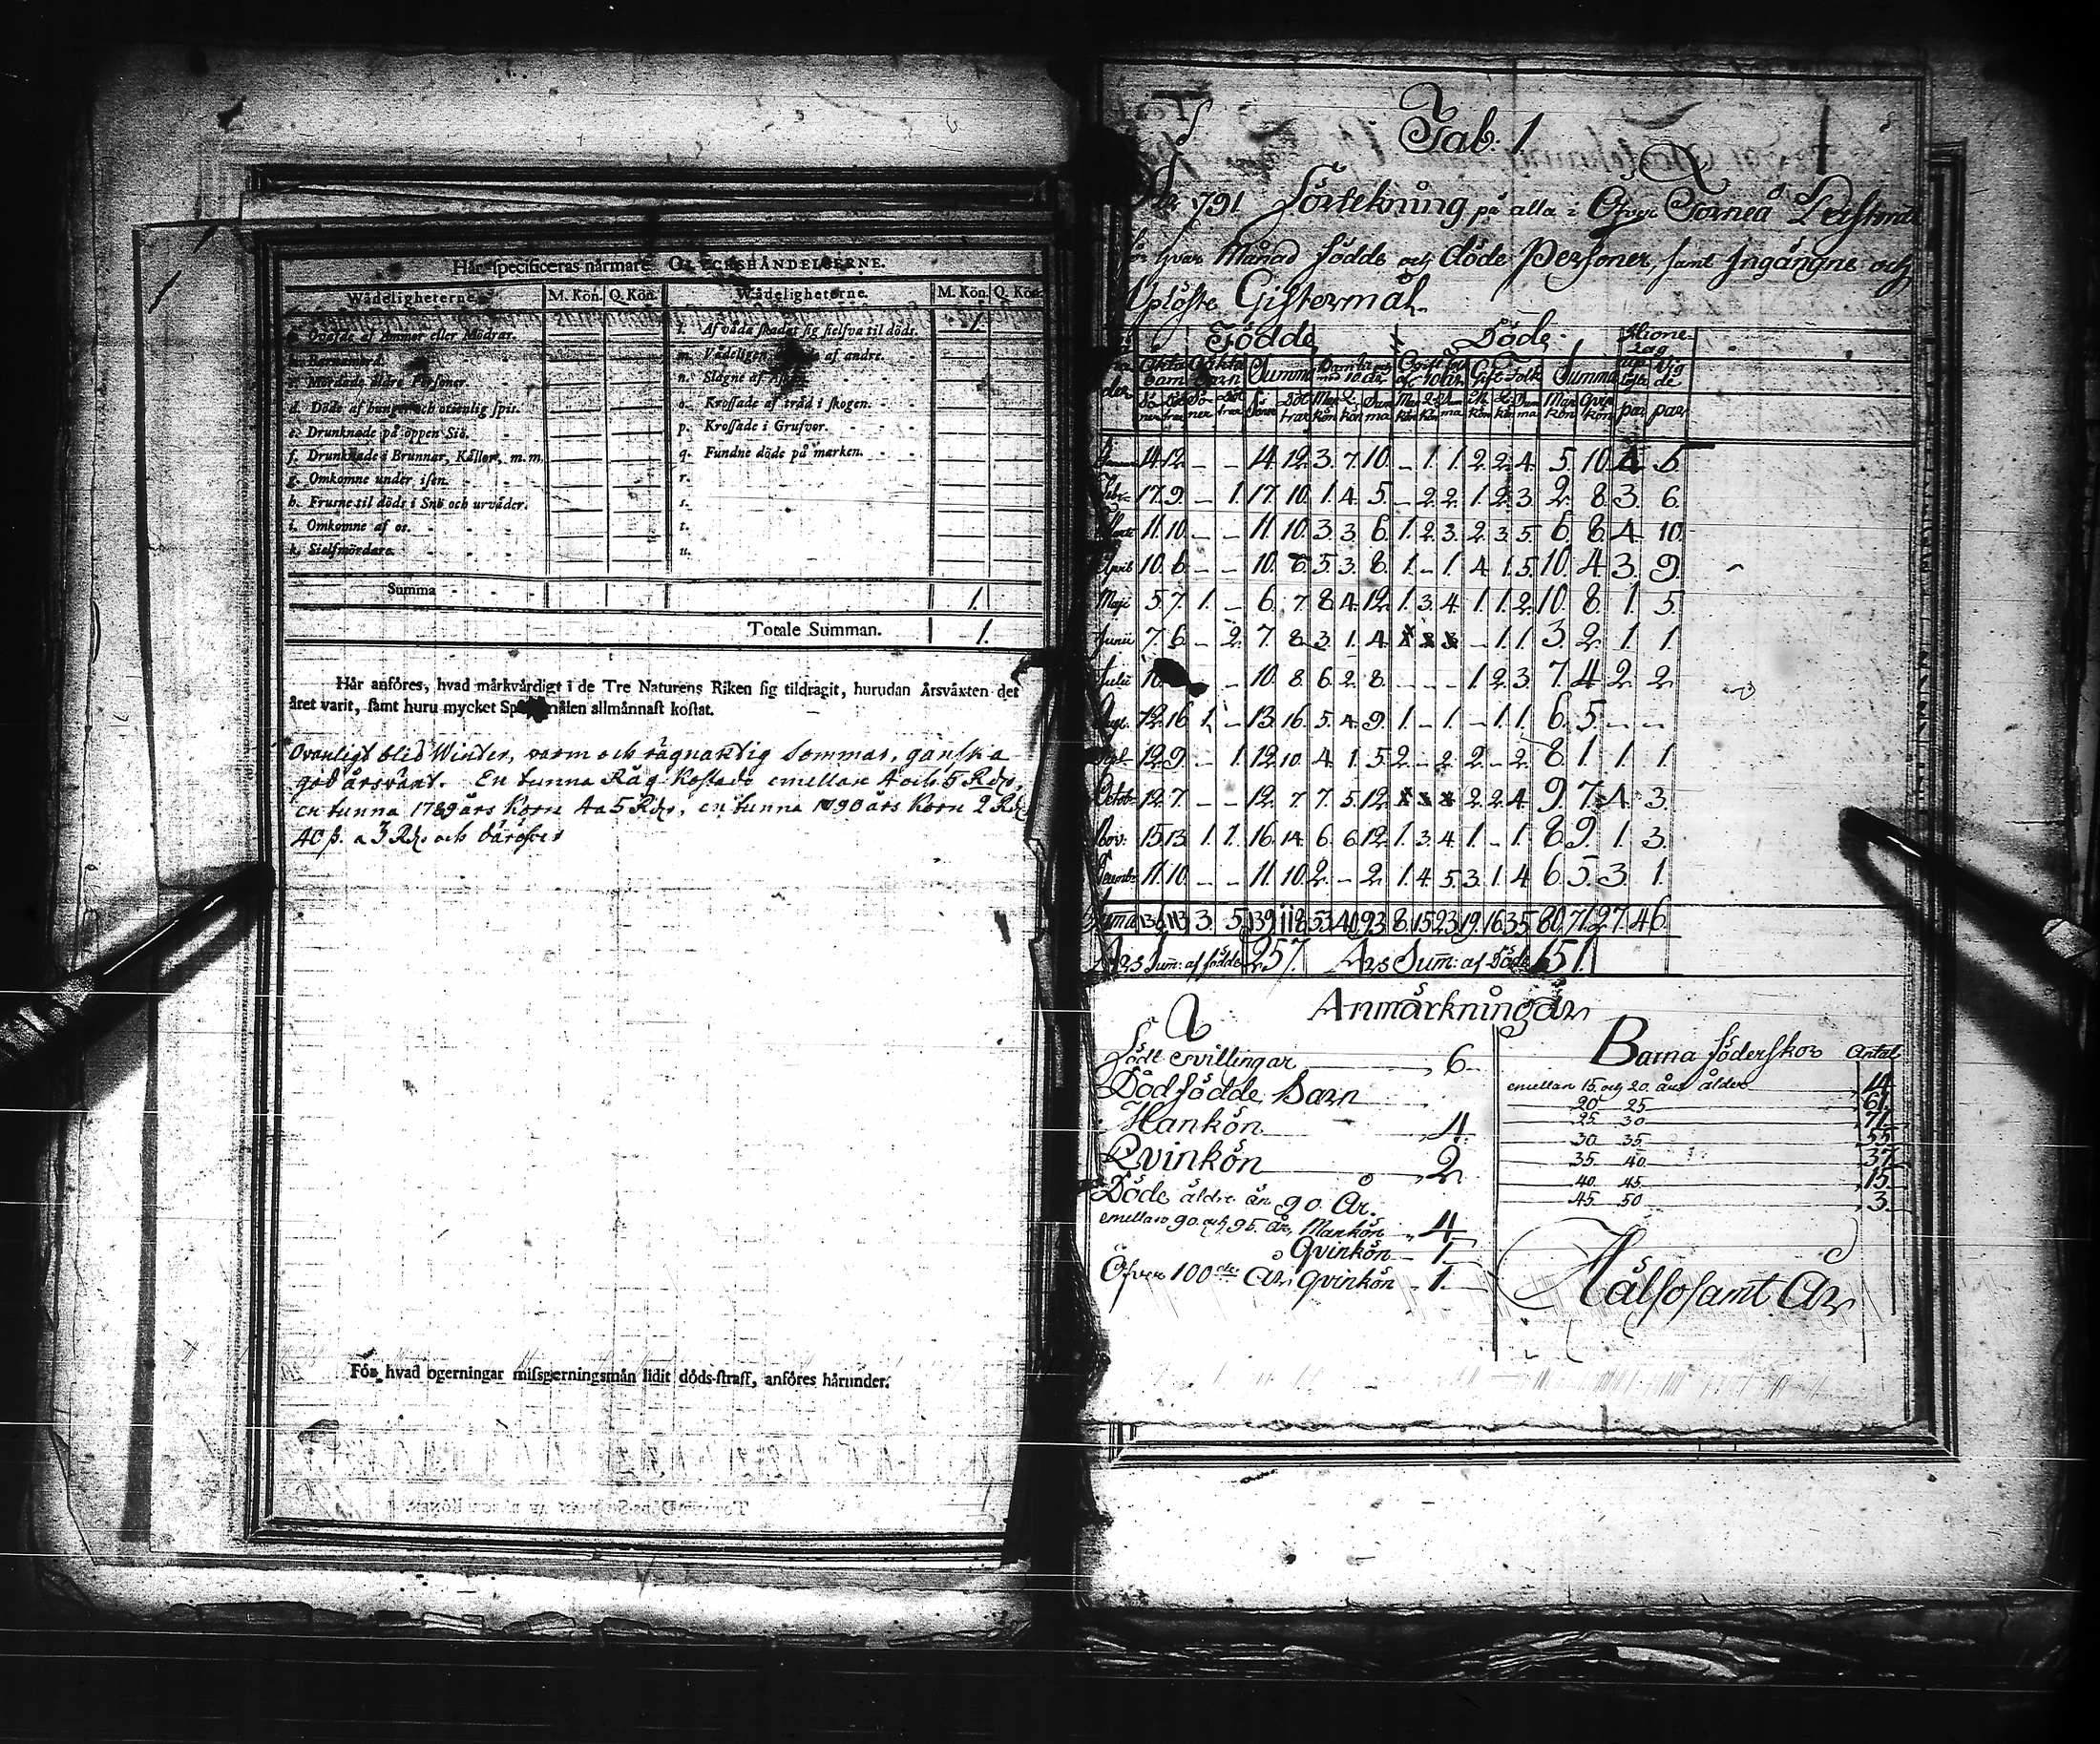 Här specificeras närmare OLYCKSHÄNDELSERNE.
Wådeligheterne. M. Kön. Q. Kön. Wådeligheterne. M. Kön. Q. Kön.
a. Qväfde af Ammor eller Mödrar. l. Af våda skadat sig sielfva til döds. 1.
b. Barnamord. m. Vådeligen af andre.
c. Mördade äldre Personer. n. Slagne af
d. Döde af hunger och otienlig spis. o. Krossade af träd i skogen.
e. Drunknade på öppen Siö. p. Krossade i Grufvor.
f. Drunknade i Brunnar, Källor, m. m. q. Fundne döde på marken.
g. Omkomne under isen. r.
h. Frusne til döds i Snö och urväder. s.
i. Omkomne af os. t.
k. Sielfmördare. u.
Summa 1.
Totale Summan. 1.
Här anföres, hvad märkvärdigt i de Tre Naturens Riken sig tildragit, hurudan Årsväxten det
året varit, samt huru mycket Spanmålen allmännast kostat.
Ovanligt blid Winter, varm och rägnaktig Sommar, ganska
god årsväxt. En tunna Råg kostade emellan 4 och 5 Rdr,
en tunna 1789 års Korn 4 a 5 Rdr, en tunna 1790 års Korn 2 Rdr
40 ß. a 3 Rdr och däröfver
För hvad ogerningar missgerningsmän lidit döds-straff, anföres härunder.
Tab. 1.
År 1791 Förtekning på alla i Öfver Torneå
för hvar Månad födde och döde Personer, samt Ingångne och
Uplöste Giftermål.
Födde Döde Hione-
lag
Januar 14. 12. - - 14. 12. 3. 7. 10. - 1. 1. 2. 2. 4. 5. 10. 6.
Febr. 17. 9. - 1. 17. 10. 1. 4. 5. - 2. 2. 1. 2. 3. 2. 8. 3. 6.
Martii 11. 10. - - 11. 10. 3. 3. 6. 1. 2. 3. 2. 3. 5. 6. 8. 4. 10.
April 10. 6. - - 10. 6. 5. 3. 8. 1. - 1. 4. 1. 5. 10. 4. 3. 9.
Maji 5. 7. 1. - 6. 7. 8. 4. 12. 1. 3. 4. 1. 1. 2. 10. 8. 1. 5.
Junii 7. 6. - 2. 7. 8. 3. 1. 4. - 1. 1. 3. 2. 1. 1.
Julii 10. - 10. 8. 6. 2. 8. - - - 1. 2. 3. 7. 4. 2. 2.
Aug. 12. 16. 1. - 13. 16. 5. 4. 9. 1. - 1. - 1. 1. 6. 5. - -
Sept. 12. 9. - 1. 12. 10. 4. 1. 5. 2. - 2. 2. - 2. 8. 1. 1. 1.
Octob. 12. 7. - - 12. 7. 7. 5. 12. 2. 2. 4. 9. 7. 4. 3.
Nov. 15. 13. 1. 1. 16. 14. 6. 6. 12. 1. 3. 4. 1. - 1. 8. 9. 1. 3.
Decemb. 11. 10. - - 11. 10. 2. - 2. 1. 4. 5. 3. 1. 4. 6. 5. 3. 1.
Suma 136. 113. 3. 5. 139. 118. 53. 40. 93. 8. 15. 23. 19. 16. 35. 80. 71. 27. 46.
Års Sum: af födde 257. Års Sum: af Döde 151.
Anmärkningar
Födt Tvillingar 6
Dödfödde Barn
Mankön 4
Qvinkön 2
Döde äldre än 90 År.
emellan 90 och 95 år, Mankön 4
Qvinkön 1
Öfver 100de År, Qvinkön 1.
Barna föderskor Antal
emellan 15 och 20 års ålder 14
20 25 61.
25 30 71
30 35 55
35 40 37
40 45 15
45 50 3
Hälsosamt År